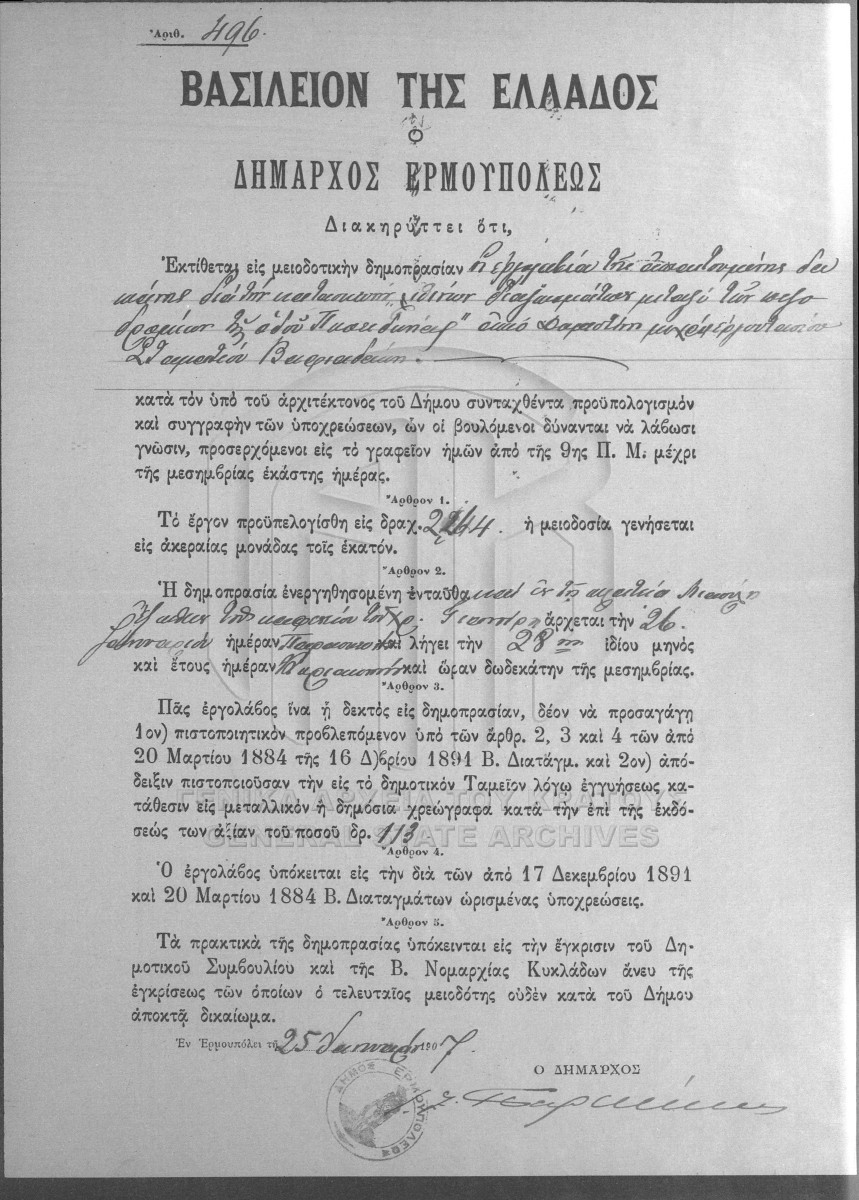 Ἀριθ. 496.
ΒΑΣΙΛΕΙΟΝ ΤΗΣ ΕΛΛΑΔΟΣ
Ο
ΔΗΜΑΡΧΟΣ ΕΡΜΟΥΠΟΛΕΩΣ
Διακηρύττει ὅτι,
Ἐκτίθεται εἰς μειοδοτικὴν δημοπρασίαν ἡ ἐργολαβία τῆς ἀπαιτουμένης δα
πάνης διὰ τὴν κατασκευὴν μεταξὺ τῶν πεζο
δρομίων τῆς ὁδοῦ ἀπὸ μέχρι ἐργοστασίου
Σταματίου
κατὰ τὸν ὑπὸ τοῦ ἀρχιτέκτονος τοῦ Δήμου συνταχθέντα προϋπολογισμὸν
καὶ συγγραφὴν τῶν ὑποχρεώσεων, ὧν οἱ βουλόμενοι δύνανται νὰ λάβωσι
γνῶσιν, προσερχόμενοι εἰς τὸ γραφεῖον ἡμῶν ἀπὸ τῆς 9ης Π. Μ. μέχρι
τῆς μεσημβρίας ἑκάστης ἡμέρας.
Ἄρθρον 1.
Τὸ ἔργον προϋπελογίσθη εἰς δραχ. 2244. ἡ μειοδοσία γενήσεται
εἰς ἀκεραίας μονάδας τοῖς ἑκατόν.
Ἄρθρον 2.
Ἡ δημοπρασία ἐνεργηθησομένη ἐνταῦθα καὶ ἐν τῇ
ἔξωθεν τοῦ καφενείου τοῦ Χρ. ἄρχεται τὴν 26
Ἰανουαρίου ἡμέραν Παρασκευὴν καὶ λήγει τὴν 28ην ἰδίου μηνὸς
καὶ ἔτους ἡμέραν Κυριακὴν καὶ ὥραν δωδεκάτην τῆς μεσημβρίας.
Ἄρθρον 3.
Πᾶς ἐργολάβος ἵνα ᾖ δεκτὸς εἰς δημοπρασίαν, δέον νὰ προσαγάγῃ
1ον) πιστοποιητικὸν προβλεπόμενον ὑπὸ τῶν ἄρθρ. 2, 3 καὶ 4 τῶν ἀπὸ
20 Μαρτίου 1884 τῆς 16 Δ)βρίου 1891 Β. Διατάγμ. καὶ 2ον) ἀπό-
δειξιν πιστοποιοῦσαν τὴν εἰς τὸ δημοτικὸν Ταμεῖον λόγῳ ἐγγυήσεως κα-
τάθεσιν εἰς μεταλλικὸν ἢ δημόσια χρεώγραφα κατὰ τὴν ἐπὶ τῆς ἐκδό-
σεώς των ἀξίαν τοῦ ποσοῦ δρ. 113
Ἄρθρον 4.
Ὁ ἐργολάβος ὑπόκειται εἰς τὴν διὰ τῶν ἀπὸ 17 Δεκεμβρίου 1891
καὶ 20 Μαρτίου 1884 Β. Διαταγμάτων ὡρισμένας ὑποχρεώσεις.
Ἄρθρον 5.
Τὰ πρακτικὰ τῆς δημοπρασίας ὑπόκεινται εἰς τὴν ἔγκρισιν τοῦ Δη-
μοτικοῦ Συμβουλίου καὶ τῆς Β. Νομαρχίας Κυκλάδων ἄνευ τῆς
ἐγκρίσεως τῶν ὁποίων ὁ τελευταῖος μειοδότης οὐδὲν κατὰ τοῦ Δήμου
ἀποκτᾷ δικαίωμα.
Ἐν Ἑρμουπόλει τῇ 25 Ἰανουαρίου 1907.
Ο ΔΗΜΑΡΧΟΣ
ΔΗΜΟΣ ΕΡΜΟΥΠΟΛΕΩΣ
ΓΕΝΙΚΑ ΑΡΧΕΙΑ ΤΟΥ ΚΡΑΤΟΥΣ
GENERAL STATE ARCHIVES